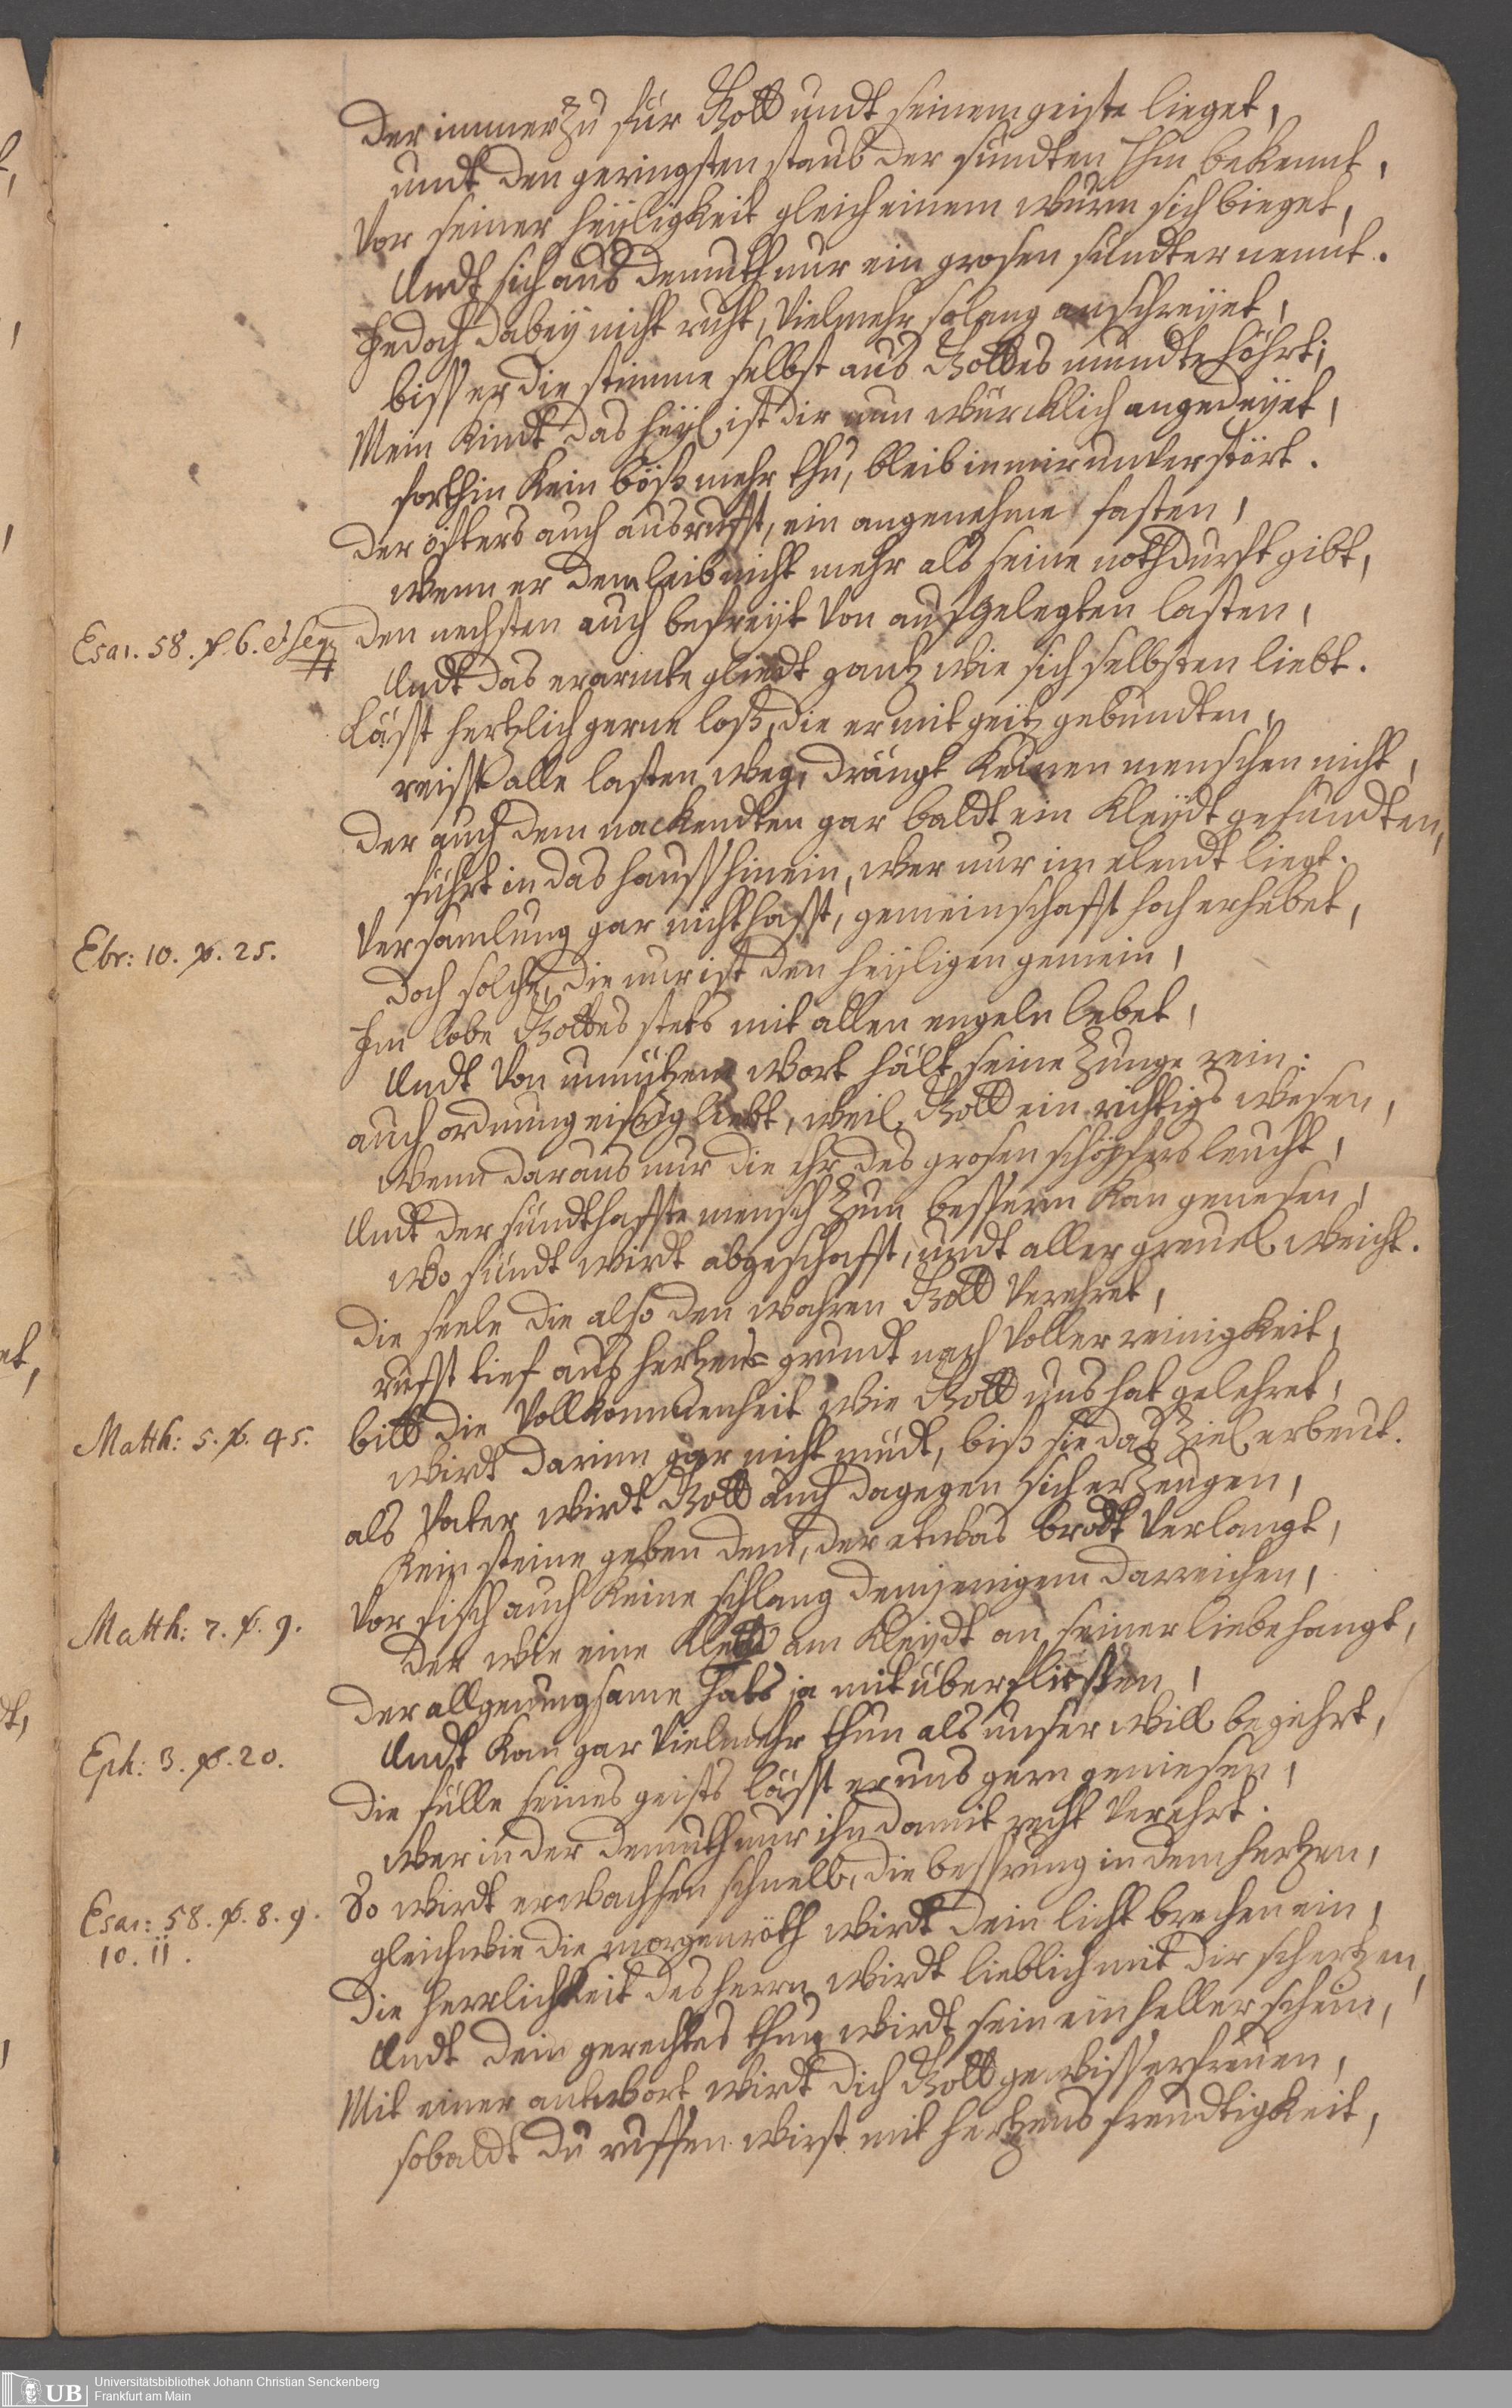 Der immerzu für Gott undt seinem geiste lieget,
undt den geringsten staub der sündten Ihm bekennt,
Vor seiner heyligkeit gleich einem wurm sich bieget,
Undt sich aus demuth nur ein grosen sündter nennt.
Jedoch dabey nicht ruht, Vielmehr solang anschreyet,
biss er die stimme selbst aus Gottes mundte höhrt;
Mein Kindt das heyl ist dir nun würcklich angedeyet,
forthin Kein böss mehr thu, bleib in mir unverstört.
Der öfters auch ausrufft, ein angenehme fasten,
wenn er dem leib nicht mehr als seine nothdurft gibt,
Esai. 58. ℣. 6. et seq.
den nechsten auch befreyt Von aufgelegten lasten,
Undt das erarmte gliedt gantz wie sich selbsten liebt.
Lässt hertzlich gerne loss, die er mit geitz gebundten,
reisst alle lasten weg, drängt Keinen menschen nicht,
Der auch dem nackendten gar baldt ein Kleydt gefundten,
führt in das hauss hinein, wer nur im elendt liegt.
Ebr: 10. ℣. 25.
Versamlung gar nicht hasst, gemeinschafft hoch erhebet,
Doch solche, die nur ist den heyligen gemein,
Im lobe Gottes stets mit allen engeln lebet,
Undt Von unnützem wort hält seine Zunge rein:
auch ordnung eifrig liebt, weil Gott ein richtigs wesen,
Wenn daraus nur die ehr des grosen schöpfers leucht,
Undt der sündthaffte mensch Zum bessern Kan genesen,
Wo sündt wirdt abgeschafft, undt aller greuel weicht.
Die seele die also den wahren Gott Verehret,
rufft tief aus hertzens=grundt nach Voller reinigkeit,
Matth: 5. ℣. 45.
bitt die Vollkommenheit wie Gott uns hat gelehret,
wirdt darinn gar nicht müdt, biss sie das Ziel erbeut.
als Vater wirdt Gott auch dagegen sich erzeugen,
Kein steine geben dem, der etwas brodt Verlangt,
Matth: 7. ℣. 9.
Vor fisch auch Keine schlang demjenigem darreichen,
der wie eine Klett am Kleydt an seiner liebe hangt,
Der allgenungsame hats ja mit überfliessen,
Eph: 3. ℣. 20.
Undt Kan gar Vielmehr thun als unser will begehrt,
Die fülle seines geists lässt er uns gern geniesen,
Wer in der demuth nur ihn damit recht Verehrt.
Esai: 58. ℣. 8. 9.
10. 11.
So wirdt erwachsen schnell, die bessrung in dem hertzen,
gleichwie die morgenröth wirdt dein licht brechen ein,
Die Herrlichkeit des Herrn wirdt lieblich mit dir schertzen,
Undt dein gerechtes thun wirdt sein ein heller schein,
Mit einer antwort wirdt dich Gott gewiss erfreuen,
sobaldt du ruffen wirst mit hertzens freudtigkeit,
UB
Universitätsbibliothek Johann Christian Senckenberg
Frankfurt am Main